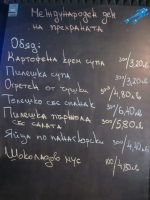 Международен ден
на прехраната
Обяд:
Картофена крем супа 300/3,20лв
Пилешка супа 300/3,20лв
Огретен от тикви 300/4,80лв
Телешко със спанак 300/6,40лв
Пилешка пържола 300/5,80лв
със салата
Яйца по панагюрски 300/4,40лв
Шоколадов мус 100/4,80лв